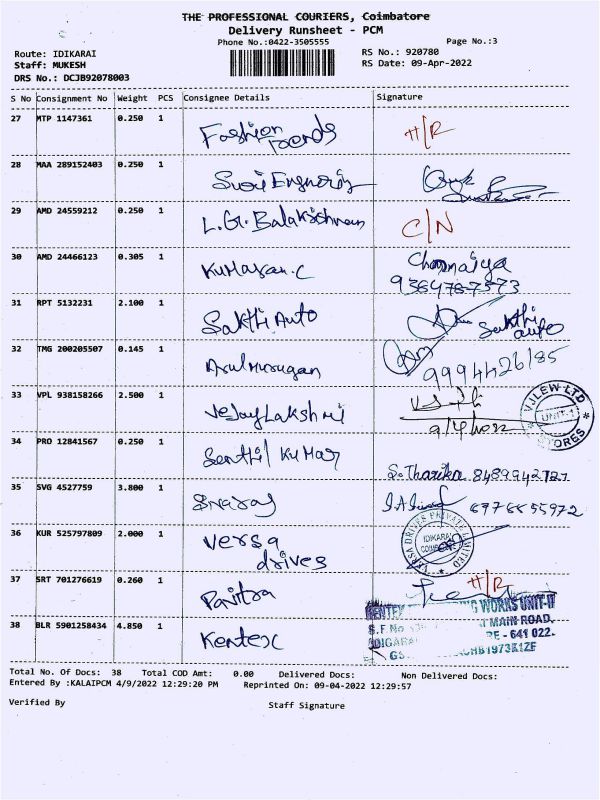 THE PROFESSIONAL COURIERS, Coimbatore
Delivery Runsheet - PCM
Phone No.:0422-3505555
Page No.:3
Route: IDIKARAI
RS No.: 920780
Staff: MUKESH
RS Date: 09-Apr-2022
DRS No.: DCJB92078003
S No Consignment No Weight PCS Consignee Details Signature
27 MTP 1147361 0.250 1 Fashion Trends H/R
28 MAA 289152403 0.250 1
29 AMD 24559212 0.250 1 L.G. Balakrishnan C/N
30 AMD 24466123 0.305 1 Kumaran.C
31 RPT 5132231 2.100 1 Sakthi Auto Sakthi auto
32 TMG 200205507 0.145 1 Arulmurugan 9994426185
33 VPL 938158266 2.500 1 VeJayLakshmi 9/4/2022
VJLEW-LTD UNIT-1 STORES
34 PRO 12841567 0.250 1 Senthil Kumar S. Tharika 8489942727
35 SVG 4527759 3.800 1 6976655972
36 KUR 525797809 2.000 1 Versa drives
VERSA DRIVES PRIVATE LIMITED IDIKARAI
37 SRT 701276619 0.260 1 Pavitra H/R
38 BLR 5901258434 4.850 1
WORKS UNIT-II
S.F No MAIN ROAD,
- 641 022.
Total No. Of Docs: 38 Total COD Amt: 0.00 Delivered Docs: Non Delivered Docs:
Entered By :KALAIPCM 4/9/2022 12:29:20 PM Reprinted On: 09-04-2022 12:29:57
Verified By
Staff Signature